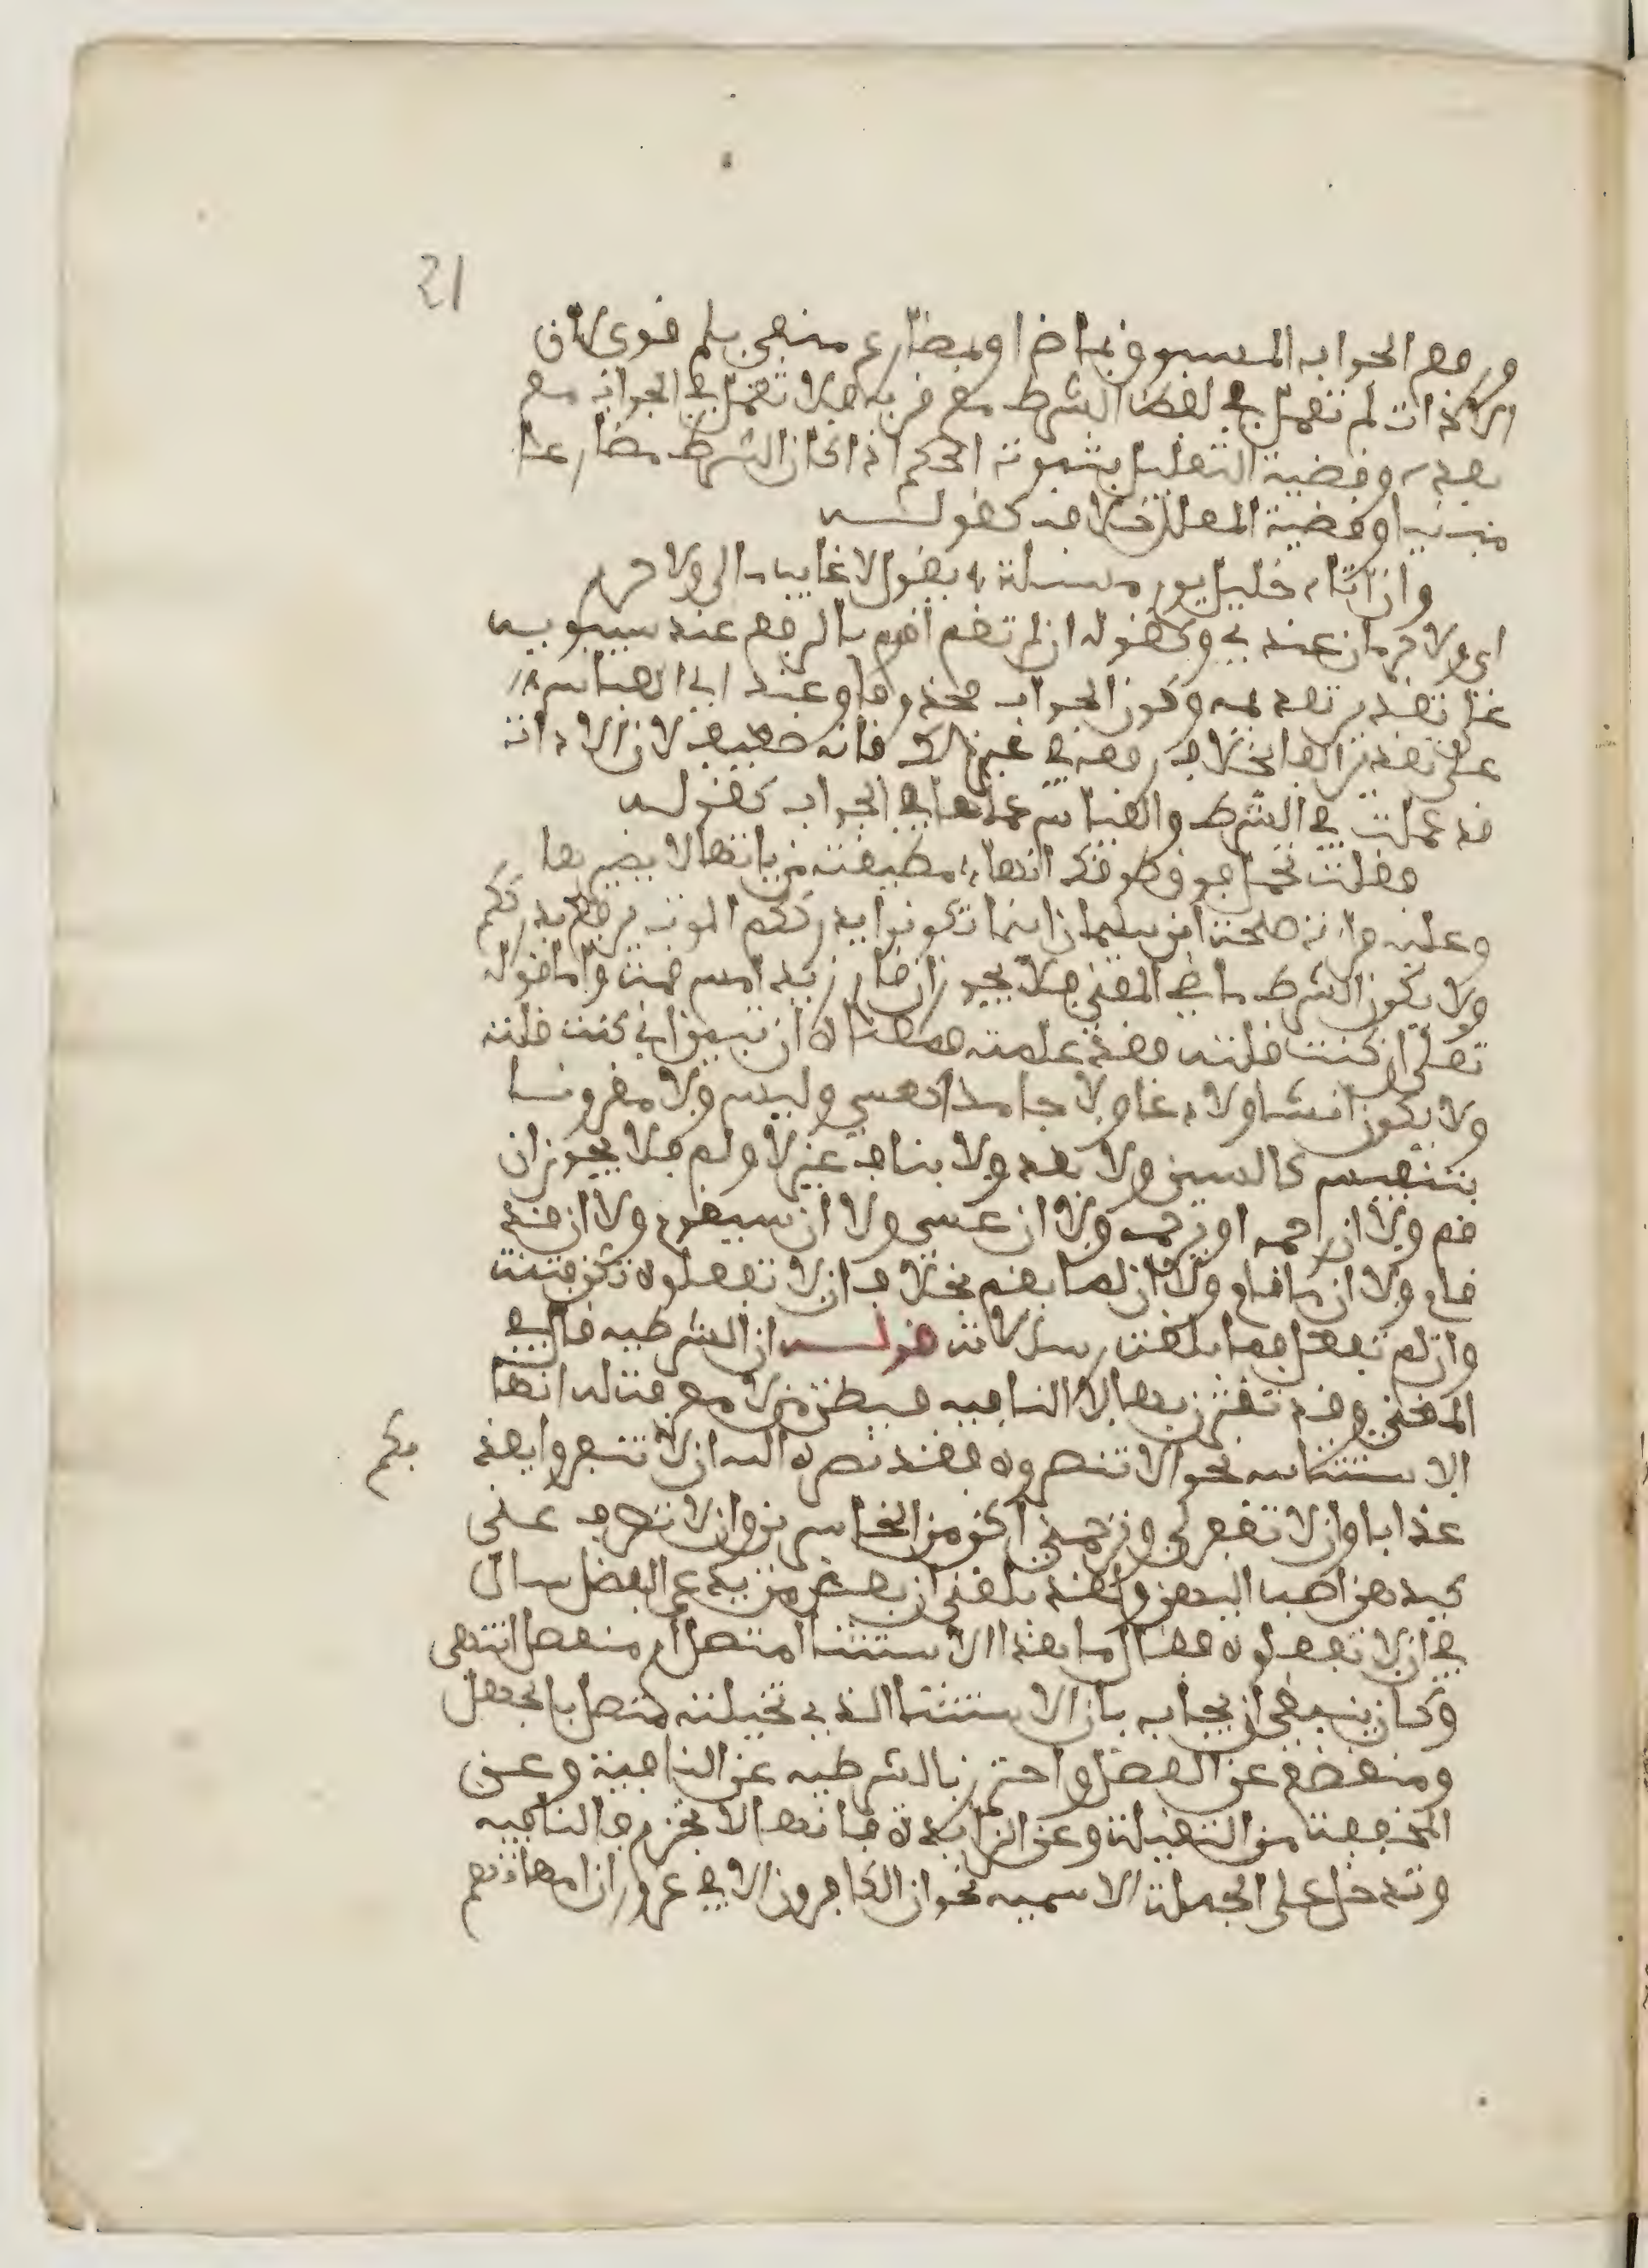 21
ورفع الجواب المسبوق بماض او بمضارع منفي بلم قوي لان
الاداة لم تعمل في لفظ الشرط مع قربه فلا تعمل في الجواب مع
بعده وقضية التعليل بثبوت الحكم اذا كان الشرط مضارعا
مبنيا وقضية المعلل خلافه كقوله
وان اتاه خليل يوم مسئلة يقول لا غايب مالي ولا حرم
اي ولا حرمان عندي وكقوله ان لم تقم اقوم بالرفع عند سيبويه
علي تقدير تقديمه وكون الجواب محذوفا وعند ابي العباس
علي تقدير الفا بخلاف رفعه في غير ذلك فانه ضعيف لان الاداة
قد عملت في الشرط والقياس عملها في الجواب كقوله
فقلت تحمل فوق طوقك انها مطبعة من ياتها لا يضيرها
وعليه قراءة طلحة ابن سليمان اينما تكونوا يدرككم الموت برفع يدرككم
ولا يكون الشرط ماضي المعني فلا يجوز ان قام زيد امس قمت واما قوله
تعلي ان كنت قلته فقد علمته فمعناه ان تبين اني كنت قلته
ولا يكون انشا ولا دعا ولا جامدا كعسي وليس ولا مقرونا
بتنفيس كالسين ولا بقد ولا بناف غير لا ولم فلا يجوز ان
قم ولا ان رحمه او يرحمه ولا ان عسى ولا ان سيقوم ولا ان قد
قام ولا ان ما قام ولا ان لما يقم بخلاف ان لا تفعلوه تكن فتنة
وان لم تفعل فما بلغت رسالاته قوله ان الشرطيه قال في
المغني وقد تقترن بها لا النافيه فيظن من لا معرفة له انها
الا ستثنائيه نحو الا تنصروه فقد نصره الله ان لا تنفروا يعذبكم
عذابا وان لا تغفر لي وترحمني اكن من الخاسرين وان لا تصرف عني
كيدهن اصب اليهن ولقد بلغني ان بعض من يدعي الفضل سال
في ان لا تفعلوه فقال ما هذا الاستثنا امتصل ام منفصل انتهى
وكان ينبغي ان يجاب بان الاستثنا الذي تخيلته متصل بالجهل
ومنقطع عن الفضل واحترز بالشرطيه عن النافية وعن
المخففة من الثقيلة وعن الزايدة فانها لا تجزم فالنافيه
وتدخل على الجملة الاسميه نحو ان الكافرون الا في غرور ان امهاتهم